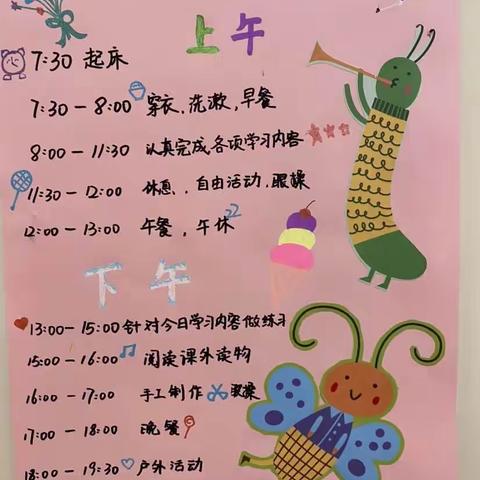 上午
7:30 起床
7:30-8:00 穿衣、洗漱、早餐
8:00-11:30 认真完成各项学习内容
11:30-12:00 休息、自由活动、眼操
12:00-13:00 午餐,午休
下午
13:00-15:00 针对今日学习内容做练习
15:00-16:00 阅读课外读物
16:00-17:00 手工制作 眼操
17:00-18:00 晚餐
18:00-19:30 户外活动